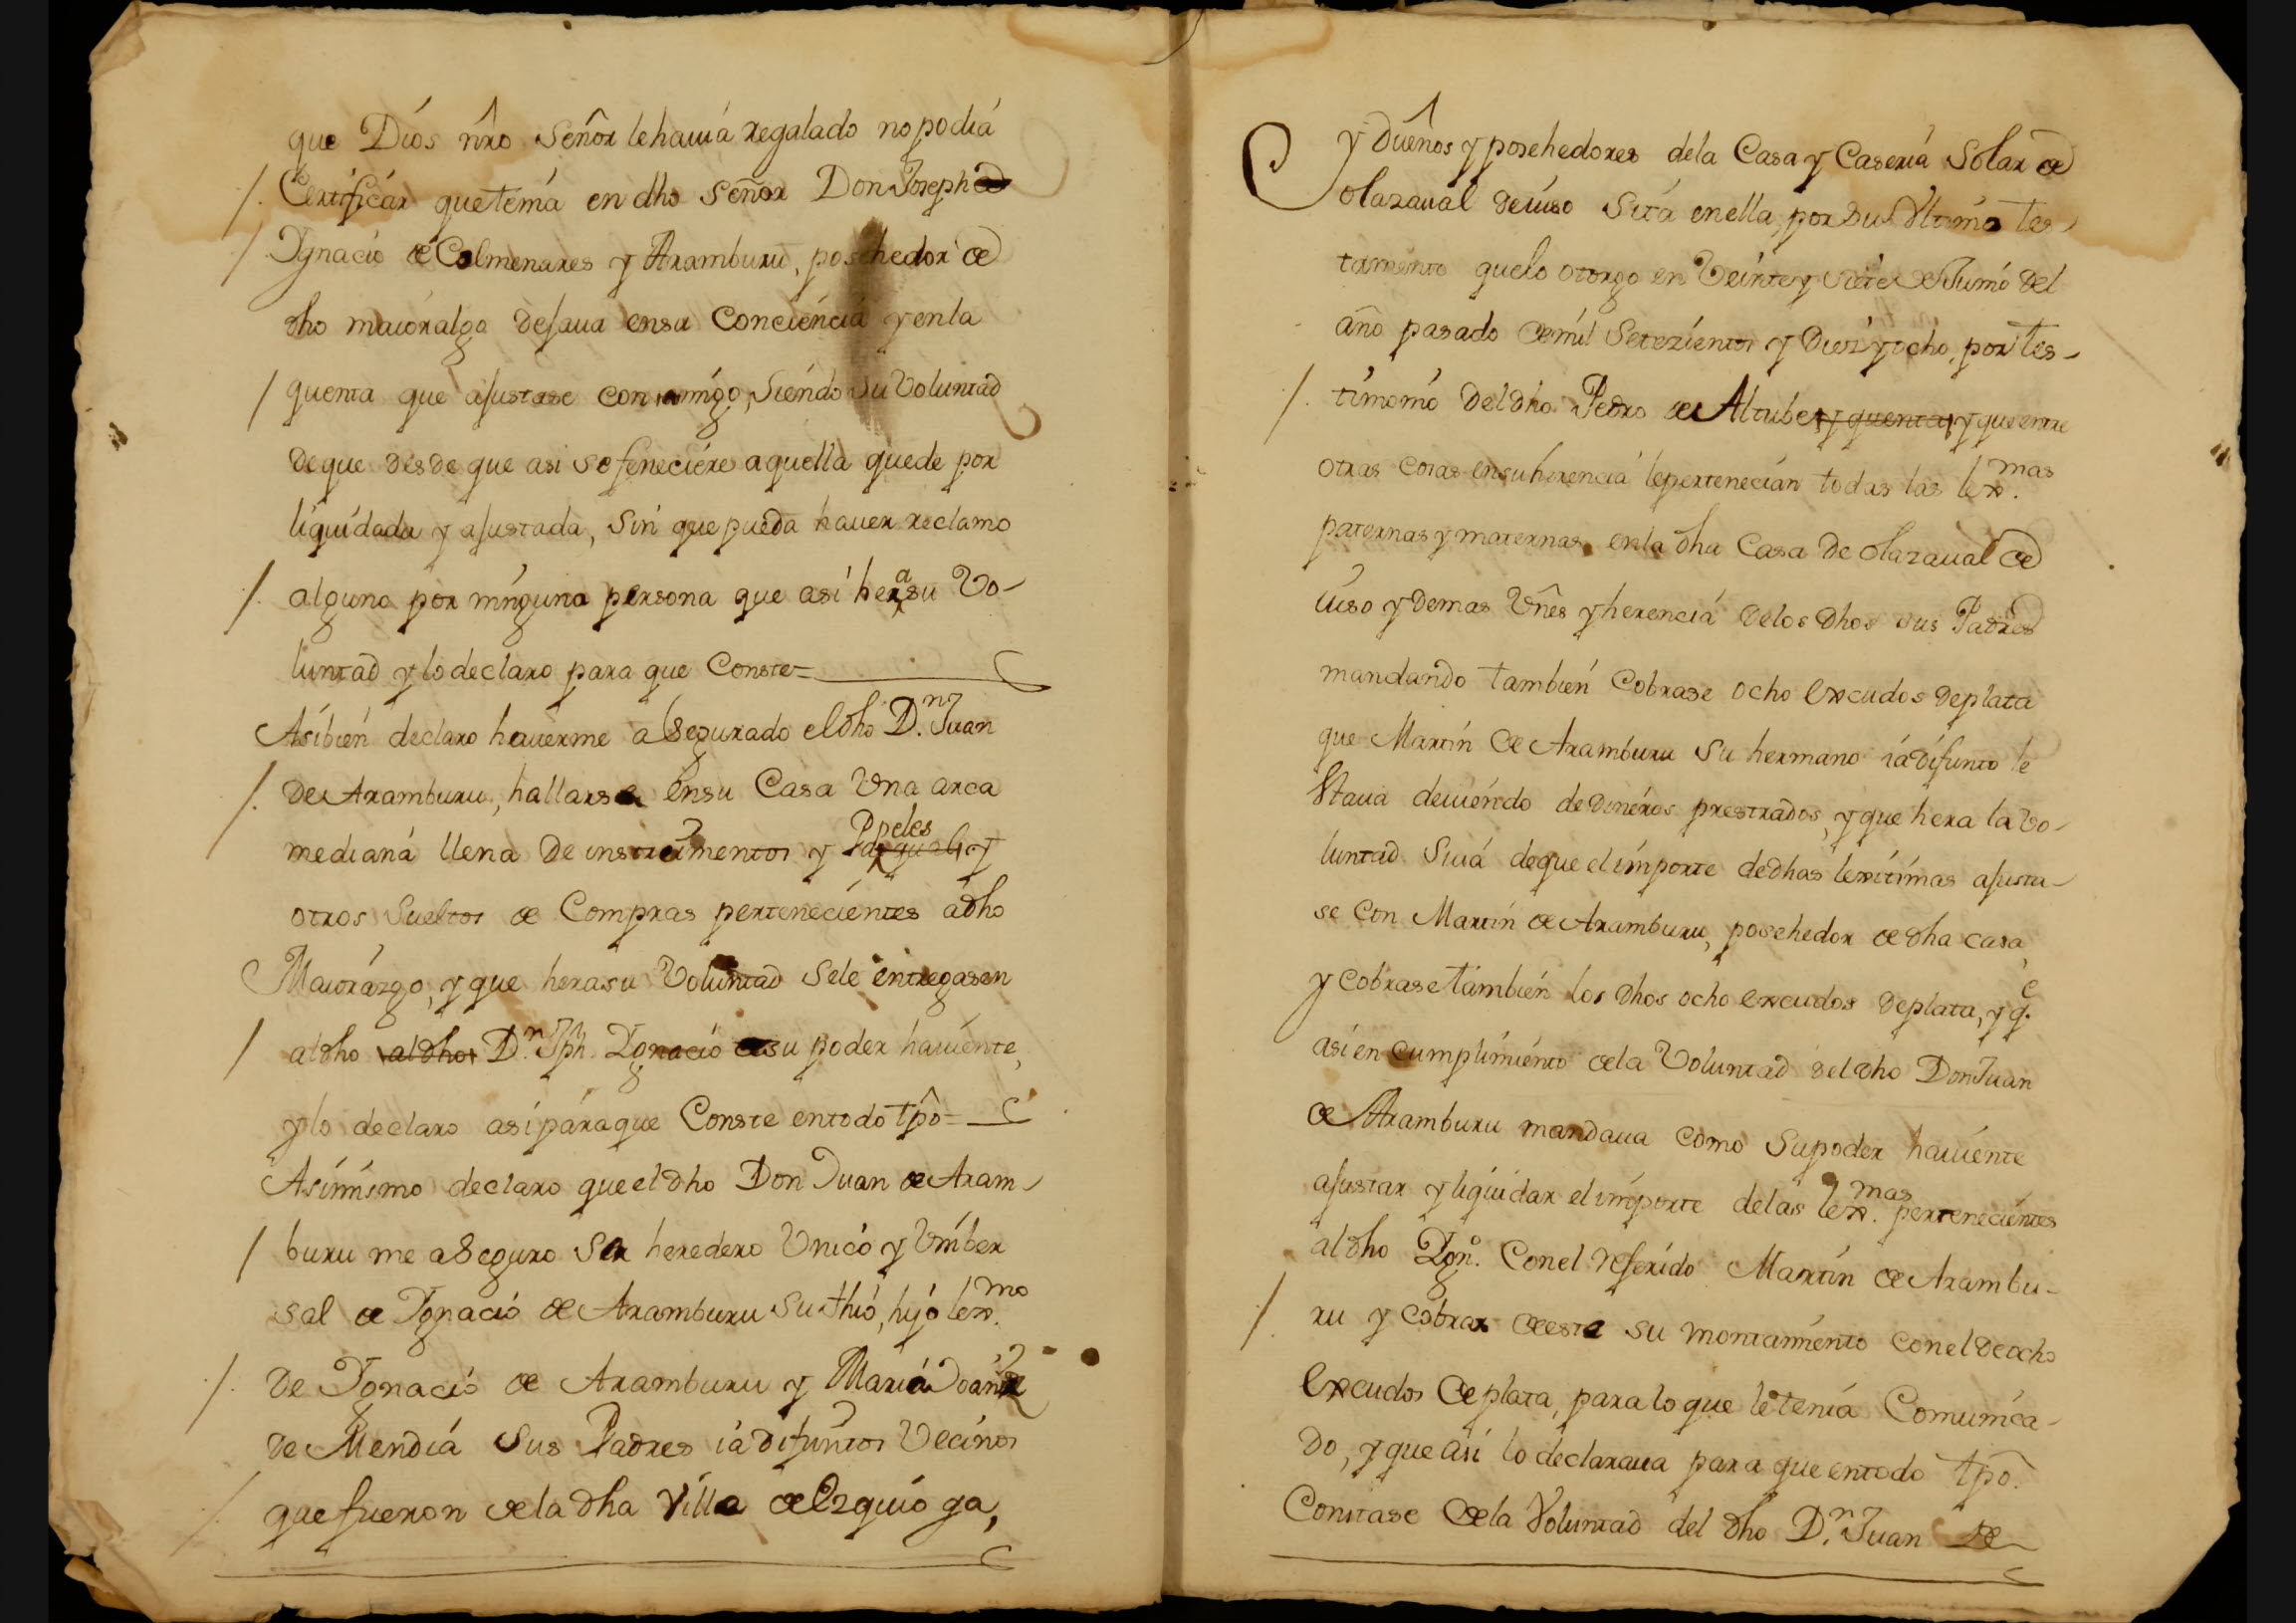 que Dios nr̃o Señor lehauia regalado nopodia
/. Certificar quetenia en dho Señor Don Joseph
/ Ygnacio de Colmenares y Aramburu, posehedor de
dho maioralgo dejaua ensu Conciencia yenla
/ quenta que ajustase conmigo, Siendo su Voluntad
deque desde que asi se feneciere aquella quede por
liquidada y ajustada, Sin que pueda hauer reclamo
/. alguno por ninguna persona que asi hera su Vo-
luntad ylodeclaro para que Conste=
Asibien declaro hauerme aSegurado eldho D.n Juan
/. de Aramburu, hallarse ensu Casa Vna arca
mediana llena de instrumentos y Ppeles y
otros Sueltos de Compras pertenecientes adho
Maiorazgo, y que herasu Voluntad Sele entregasen
/ aldho aldho D.n Jph. Ygnacio osu poder hauiente,
ylo declaro asiparaque Conste entodo tp̃o=
Asimismo declaro queeldho Don Juan de Aram-
/ buru me aSeguro Ser heredero Vnico y Vniber
sal de Ygnacio de Aramburu Su thio, hijo lex.mo
/. de Ygnacio de Aramburu y Maria Joana
de Mendia Sus Padres ia difuntos Vecinos
/. quefueron dela dha Villa de Ezquioga,
y dueños y posehedores dela Casa y Caseria Solar de
olazaual deiuso Sita enella, por Su Vltimo tes-
tamento quelo otorgo en Veinte y Siete de Junio del
año pasado demil Setezientos y Diez y ocho, por tes-
/. timonio deldho Pedro de Altube y quenta y que entre
otras cosas ensuherencia lepertenecian todas las lex.mas
paternas y maternas enla dha Casa de olazaual de
iuso y demas Vñes yherencia delos dhos sus Padres
mandando tambien Cobrase ocho excudos deplata
que Martin de Aramburu Su hermano iadifunto le
Staua deuiendo de dineros prestrados, y que hera la vo-
luntad Suia deque elimporte dedhas lexitimas ajusta-
se con Martin de Aramburu, posehedor de dha casa,
y cobrase tambien los dhos ocho excudos deplata, y q.e
asi en cumplimiento dela Voluntad deldho Don Juan
de Aramburu mandaua como Supoder hauiente
ajustar y liquidar elimporte delas lex.mas pertenecientes
aldho Ygn.o Conel referido Martin de Arambu-
/. ru y cobrar deeste su montamiento conel deocho
Excudos de plata, para lo que letenia Comunica-
do, y que asi lo declaraua para que entodo tp̃o.
Constase dela Voluntad del dho D.n Juan de